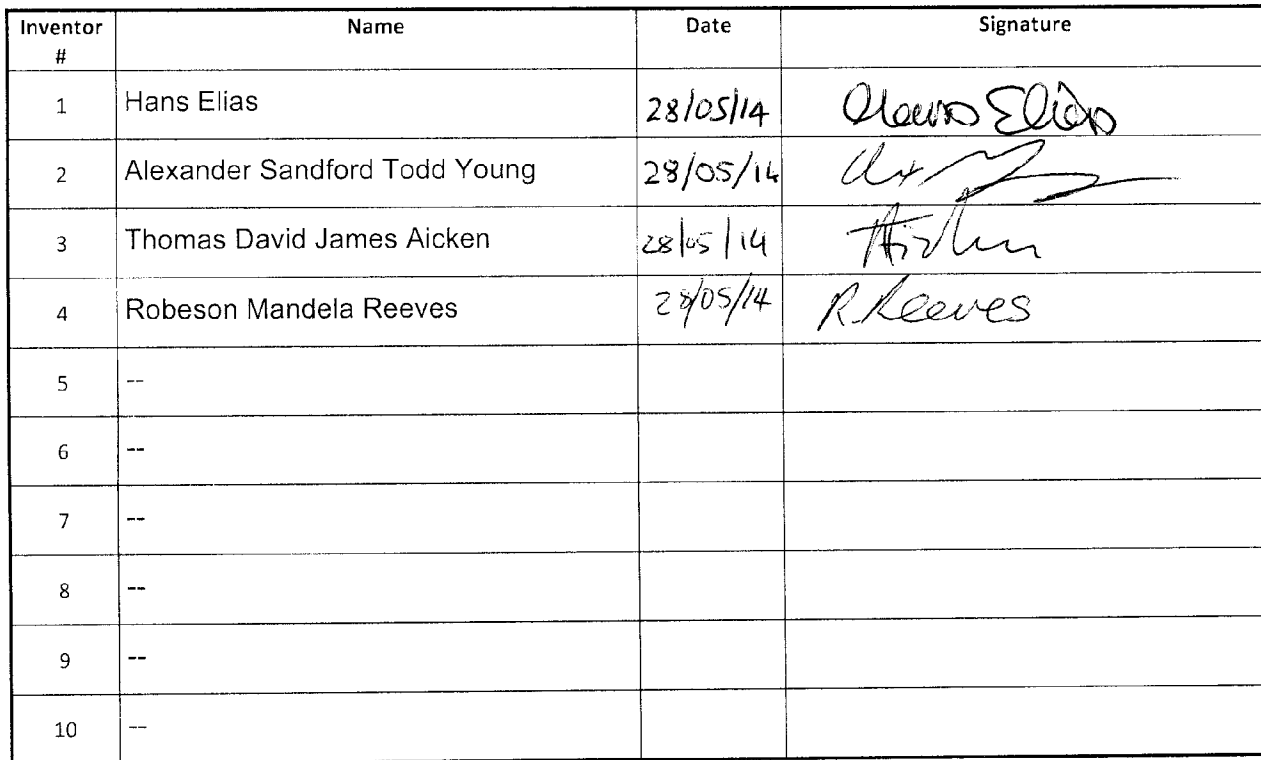 Inventor # Name Date Signature
1 Hans Elias 28/05/14 Hans Elias
2 Alexander Sandford Todd Young 28/05/14
3 Thomas David James Aicken 28/05/14
4 Robeson Mandela Reeves 28/05/14 R. Reeves
5 --
6 --
7 --
8 --
9 --
10 --